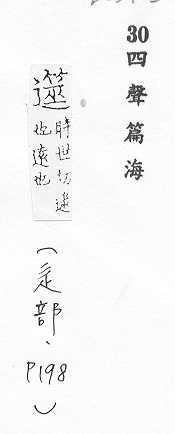 30四聲篇海
遾
時世切逮
也遠也
(辵部．P198)